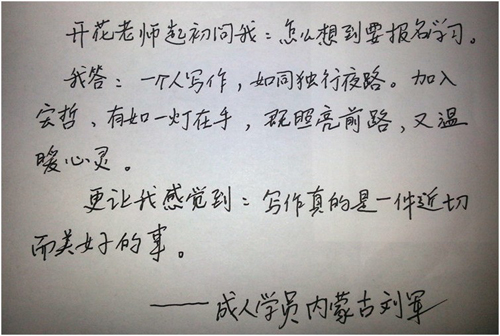 开花老师起初问我：怎么想到要报名学习。
我答：一个人写作，如同独行夜路。加入
宏哲，有如一灯在手，既照亮前路，又温
暖心灵。
更让我感觉到：写作真的是一件近切
而美好的事。
——成人学员内蒙古刘军